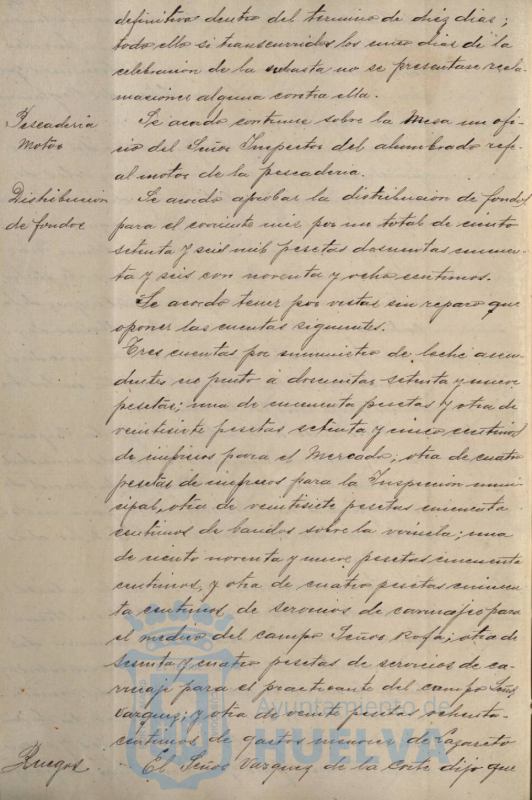 definitiva dentro del termino de diéz dias;
todo ello si transcurridos los cinco dias de la
celebración de la subasta no se presentase recla-
maciones alguna contra ella.
Pescaderia
Motor
Se acordo continue sobre la Mesa un ofi-
cio del Señor Inspector del alumbrado refe-
al motor de la pescaderia.
Distribución
de fondos
Se acordó aprobar la distribución de fondos
para el corriente mes por un total de ciento
setenta y seis mil pesetas doscientas cincuen-
ta y seis con noventa y ocho centimos.
Se acordo tener por vistas sin reparo que
oponer las cuentas siguientes.
Tres cuentas por suministro de leche ascen-
dentes en junto á doscientas setenta y nueve
pesetas; una de cincuenta pesetas y otra de
veintisiete pesetas setenta y cinco centimos
de impresos para el Mercado; otra de cuatro
pesetas de impresos para la Inspección muni-
cipal, otra de veintisiete pesetas cincuenta
centimos de bandos sobre la viruela; una
de ciento noventa y nueve pesetas cincuenta
centimos, y otra de cuatro pesetas cincuen-
ta centimos de servicios de carruajes para
el medico del campo Señor Rofa; otra de
sesenta y cuatro pesetas de servicios de ca-
rruaje para el practicante del campo Señor
Vazquez; y otra de veinte pesetas ochenta
centimos de gastos menores de Lazareto
Ruegos
El Señor Vazquez de la Corte dijo que
Ayuntamiento de
HUELVA